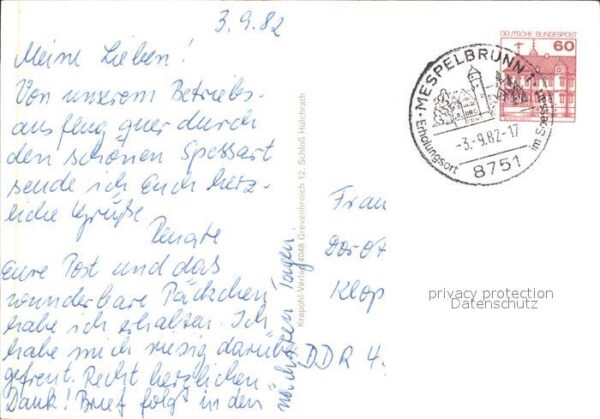 3.9.82
Meine Lieben!
Von unserem Betriebs-
ausflug quer durch
den schönen Spessart
sende ich Euch herz-
liche Grüße
Renate
Eure Post und das
wunderbare Päckchen
habe ich erhalten. Ich
habe mich riesig darüber
gefreut. Recht herzlichen
Dank! Brief folgt in den
nächsten Tagen.
Krapohl-Verlag 4048 Grevenbroich 12, Schloß Hülchrath
DEUTSCHE BUNDESPOST
60
MESPELBRUNN 1
-3.-9.82-17
8751
Erholungsort im Spessart
Frau
Dorot
Klop
DDR 4.
privacy protection
Datenschutz